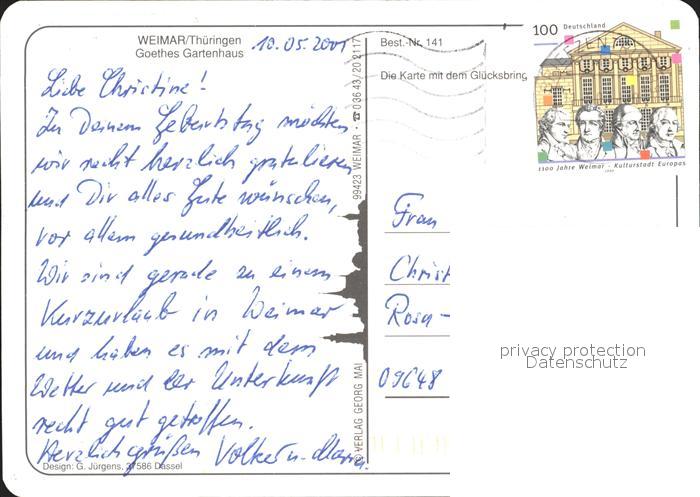 WEIMAR/Thüringen
Goethes Gartenhaus
10.05.2001
Liebe Christine!
Zu Deinem Geburtstag möchten
wir recht herzlich gratulieren
und Dir alles Gute wünschen,
vor allem gesundheitlich.
Wir sind gerade zu einem
Kurzurlaub in Weimar
und haben es mit dem
Wetter und der Unterkunft
recht gut getroffen.
Herzlich grüßen Volker u. Maria.
Design: G. Jürgens, 37586 Dassel
© VERLAG GEORG MAI 99423 WEIMAR · ☎ 03643/202117
Best.-Nr. 141
Die Karte mit dem Glücksbring
100 Deutschland
1100 Jahre Weimar - Kulturstadt Europas
1999
Frau
Christ
Rosa-
09648
privacy protection
Datenschutz